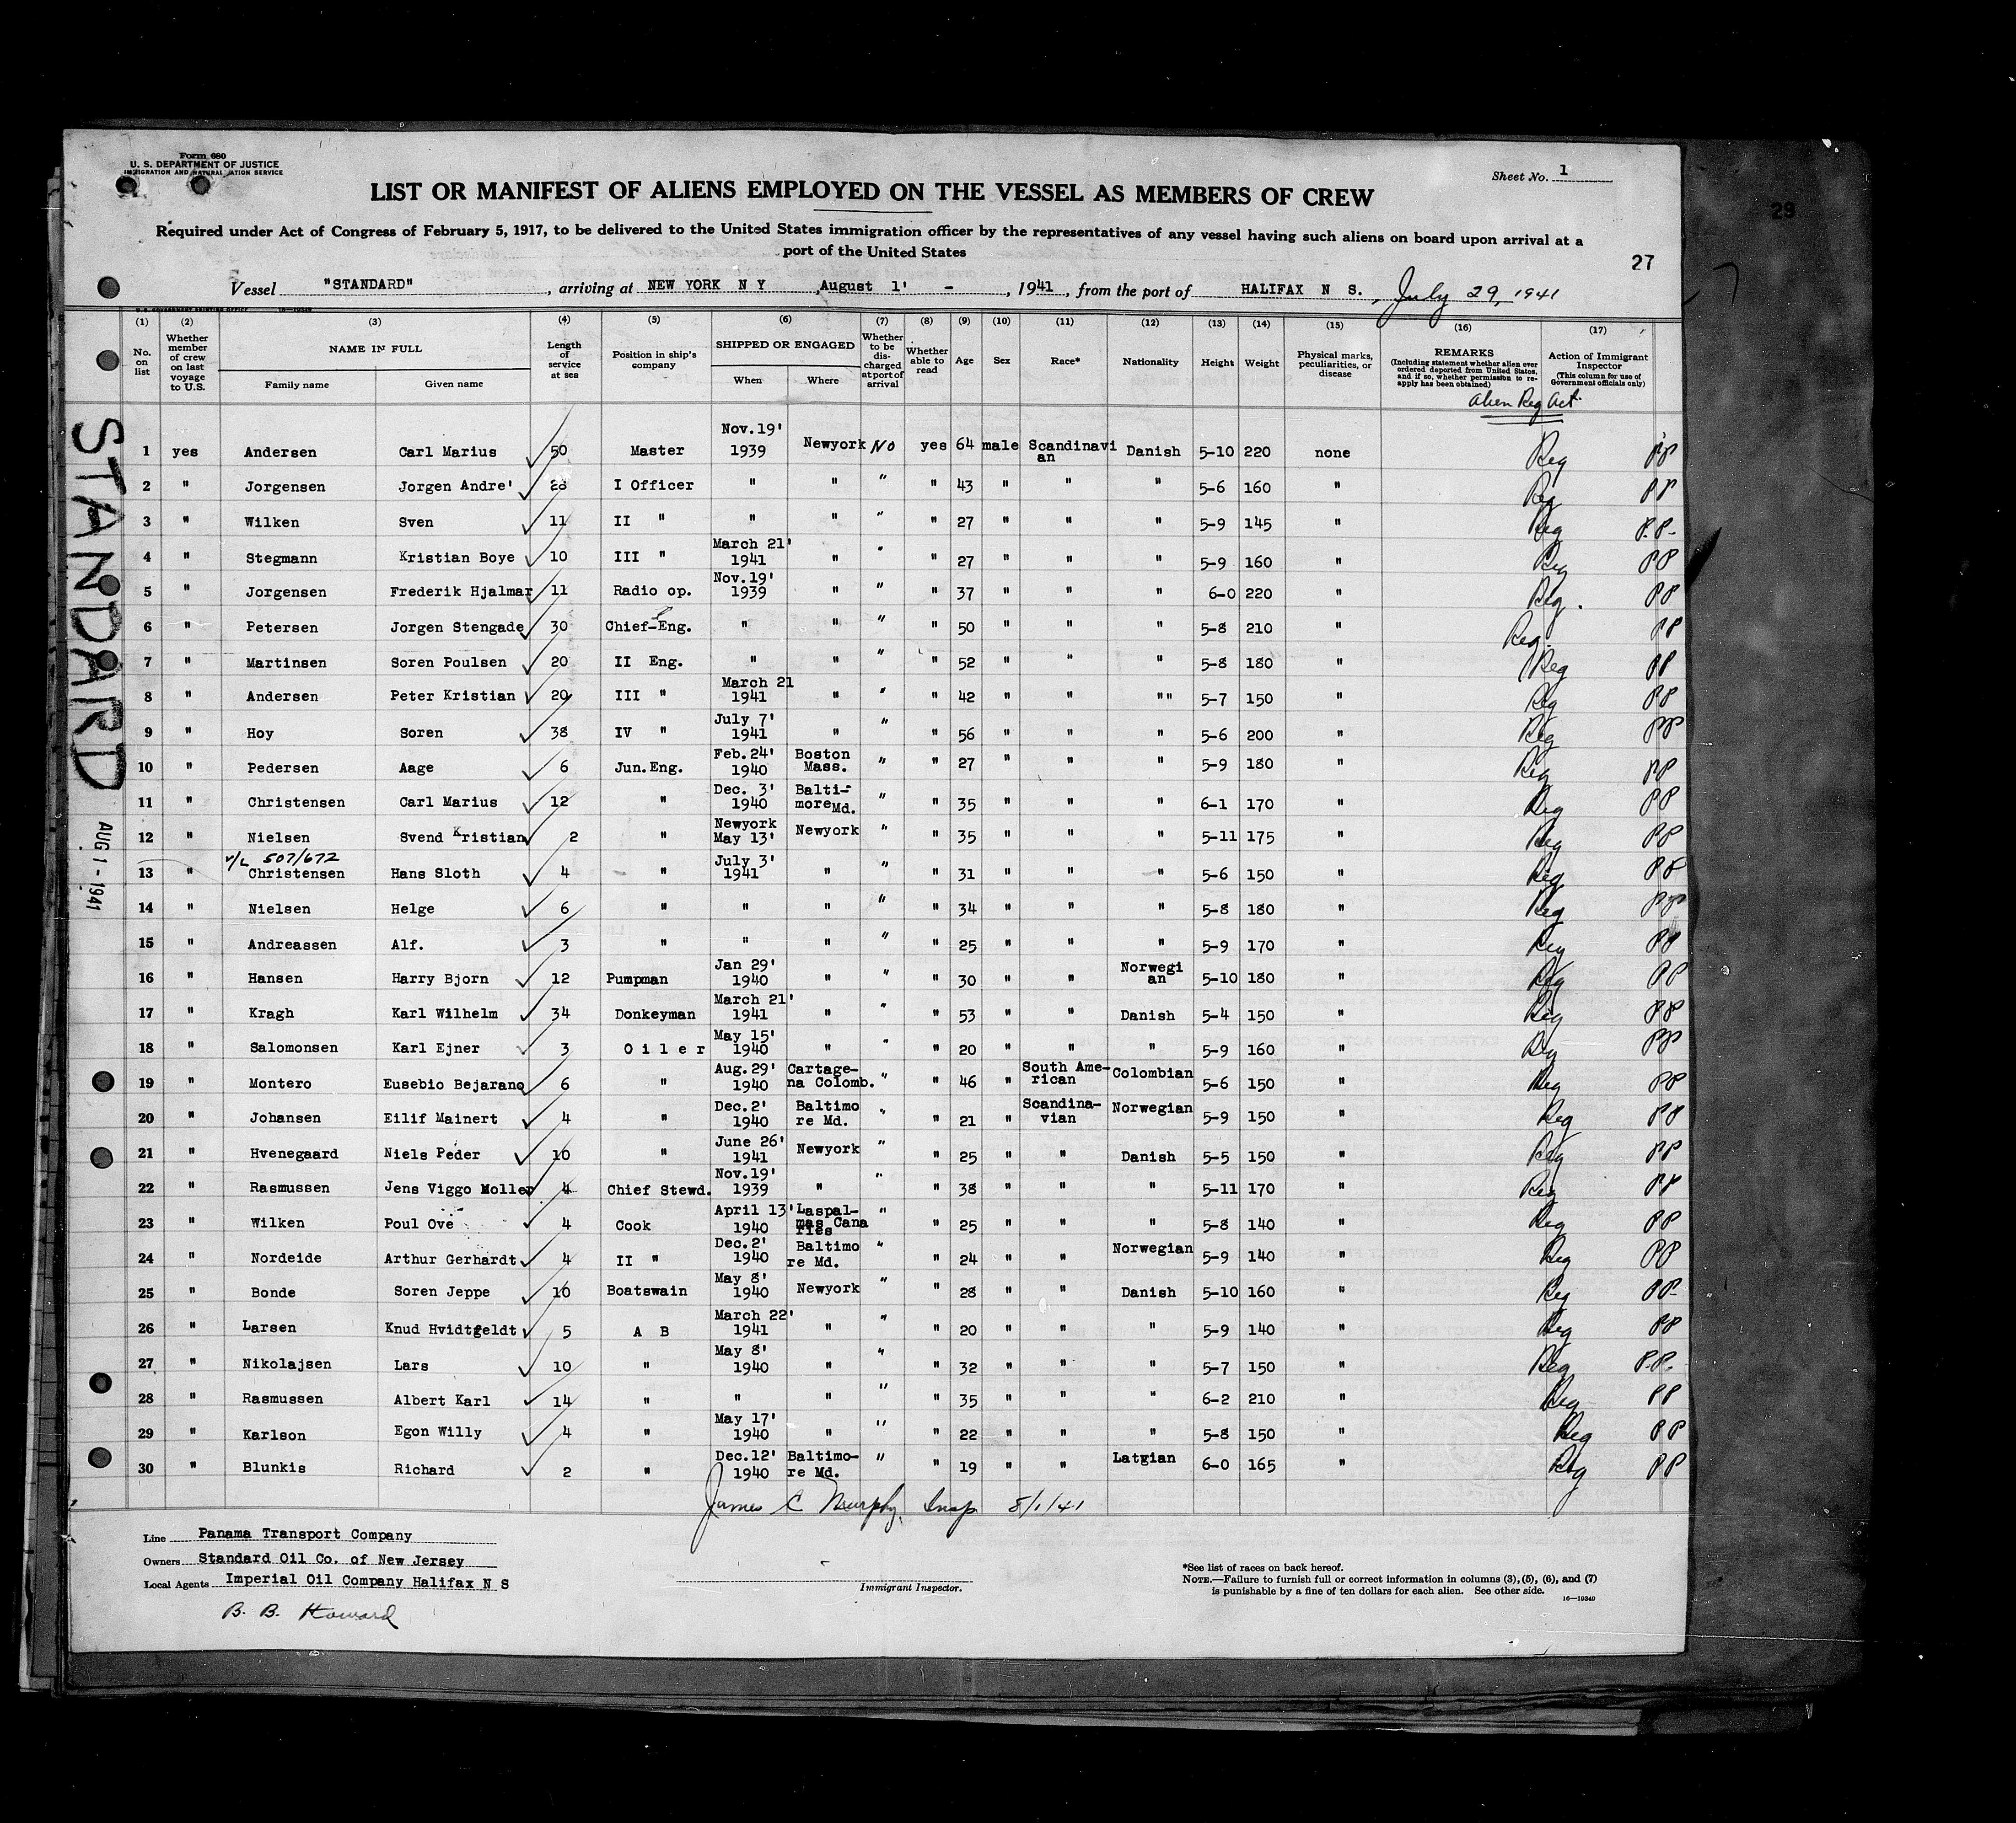 Form 680
U. S. DEPARTMENT OF JUSTICE
IMMIGRATION AND NATURALIZATION SERVICE
Sheet No. 1
LIST OR MANIFEST OF ALIENS EMPLOYED ON THE VESSEL AS MEMBERS OF CREW
Required under Act of Congress of February 5, 1917, to be delivered to the United States immigration officer by the representatives of any vessel having such aliens on board upon arrival at a
port of the United States
29
27
Vessel "STANDARD", arriving at NEW YORK N Y August 1' -, 1941, from the port of HALIFAX N S., July 29, 1941
(1) (2) (3) (4) (5) (6) (7) (8) (9) (10) (11) (12) (13) (14) (15) (16) (17)
No. on list
Whether member of crew on last voyage to U.S.
NAME IN FULL
Family name Given name
Length of service at sea
Position in ship's company
SHIPPED OR ENGAGED
When Where
Whether to be discharged at port of arrival
Whether able to read
Age
Sex
Race*
Nationality
Height
Weight
Physical marks, peculiarities, or disease
REMARKS
(Including statement whether alien ever ordered deported from United States, and if so, whether permission to re-apply has been obtained)
Action of Immigrant Inspector
(This column for use of Government officials only)
Alien Reg Act
STANDARD
AUG 1 - 1941
1 yes Andersen Carl Marius 50 Master Nov.19' 1939 Newyork No yes 64 male Scandinavian Danish 5-10 220 none Reg PP
2 " Jorgensen Jorgen Andre' 28 I Officer " " " " 43 " " " 5-6 160 " Reg PP
3 " Wilken Sven 11 II " " " " " 27 " " " 5-9 145 " Reg P.P.
4 " Stegmann Kristian Boye 10 III " March 21' 1941 " " " 27 " " " 5-9 160 " Reg PP
5 " Jorgensen Frederik Hjalmar 11 Radio op. Nov.19' 1939 " " " 37 " " " 6-0 220 " Reg. PP
6 " Petersen Jorgen Stengade 30 Chief-Eng. " " " " 50 " " " 5-8 210 " Reg. PP
7 " Martinsen Soren Poulsen 20 II Eng. " " " " 52 " " " 5-8 180 " Reg PP
8 " Andersen Peter Kristian 20 III " March 21 1941 " " " 42 " " "" 5-7 150 " Reg PP
9 " Hoy Soren 38 IV " July 7' 1941 " " " 56 " " " 5-6 200 " Reg PP
10 " Pedersen Aage 6 Jun.Eng. Feb.24' 1940 Boston Mass. " " 27 " " " 5-9 180 " Reg PP
11 " Christensen Carl Marius 12 " Dec. 3' 1940 Balti-more Md. " " 35 " " " 6-1 170 " Reg PP
12 " Nielsen Svend Kristian 2 " Newyork May 13' Newyork " " 35 " " " 5-11 175 " Reg PP
v/L 507/672
13 " Christensen Hans Sloth 4 " July 3' 1941 " " " 31 " " " 5-6 150 " Reg PP
14 " Nielsen Helge 6 " " " " " 34 " " " 5-8 180 " Reg PP
15 " Andreassen Alf. 3 " " " " " 25 " " " 5-9 170 " Reg PP
16 " Hansen Harry Bjorn 12 Pumpman Jan 29' 1940 " " " 30 " " Norwegian 5-10 180 " Reg PP
17 " Kragh Karl Wilhelm 34 Donkeyman March 21' 1941 " " " 53 " " Danish 5-4 150 " Reg PP
18 " Salomonsen Karl Ejner 3 Oiler May 15' 1940 " " " 20 " " " 5-9 160 " Reg PP
19 " Montero Eusebio Bejarano 6 " Aug.29' 1940 Cartage-na Colomb. " " 46 " South Ame-rican Colombian 5-6 150 " Reg PP
20 " Johansen Eilif Mainert 4 " Dec.2' 1940 Baltimo re Md. " " 21 " Scandina-vian Norwegian 5-9 150 " Reg PP
21 " Hvenegaard Niels Peder 10 " June 26' 1941 Newyork " " 25 " " Danish 5-5 150 " Reg PP
22 " Rasmussen Jens Viggo Moller 4 Chief Stewd. Nov.19' 1939 " " " 38 " " " 5-11 170 " Reg PP
23 " Wilken Poul Ove 4 Cook April 13' 1940 Laspal-mas Cana ries " " 25 " " " 5-8 140 " Reg PP
24 " Nordeide Arthur Gerhardt 4 II " Dec.2' 1940 Baltimo re Md. " " 24 " " Norwegian 5-9 140 " Reg PP
25 " Bonde Soren Jeppe 10 Boatswain May 8' 1940 Newyork " " 28 " " Danish 5-10 160 " Reg PP
26 " Larsen Knud Hvidtfeldt 5 A B March 22' 1941 " " " 20 " " " 5-9 140 " Reg PP
27 " Nikolajsen Lars 10 " May 8' 1940 " " " 32 " " " 5-7 150 " Reg P.P.
28 " Rasmussen Albert Karl 14 " " " " " 35 " " " 6-2 210 " Reg PP
29 " Karlson Egon Willy 4 " May 17' 1940 " " " 22 " " " 5-8 150 " Reg PP
30 " Blunkis Richard 2 " Dec.12' 1940 Baltimo-re Md. " " 19 " " Latgian 6-0 165 " Reg PP
James C Murphy, Insp 8/1/41
Line Panama Transport Company
Owners Standard Oil Co. of New Jersey
Local Agents Imperial Oil Company Halifax N S
B. B. Howard
Immigrant Inspector.
*See list of races on back hereof.
NOTE.—Failure to furnish full or correct information in columns (3), (5), (6), and (7)
is punishable by a fine of ten dollars for each alien. See other side.
16—19349